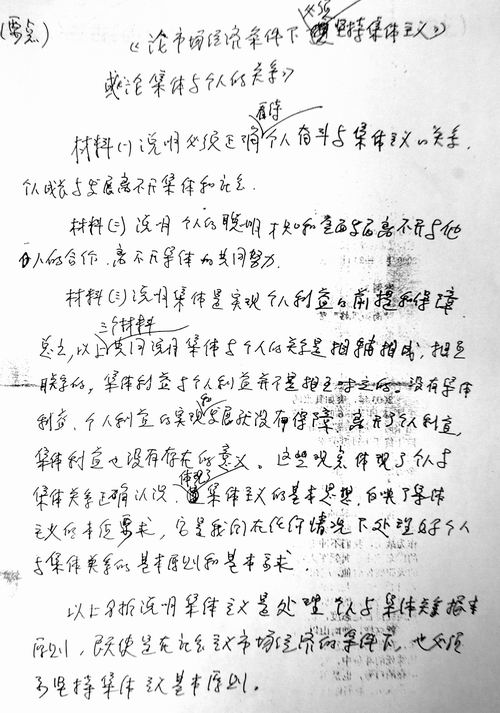 (要点)
必须
《论市场经济条件下坚持集体主义》
或论集体与个人的关系》
看待
材料(一)说明必须正确个人奋斗与集体主义的关系,
个人成长与发展离不开集体和社会.
材料(二)说明个人的聪明才知和离不开与他
人的合作.离不开集体的共同努力.
材料(三)说明集体是实现个人利益的前提和保障.
三个材料
总之,以上共同说明集体与个人的关系是相辅相成,相互
联系的,集体利益与个人利益并不是相互对立的.没有集体
利益、个人利益的实现和发展就没有保障.离开了个人利益,
集体利益也没有存在的意义。这些观点体现了个人与
体现了
集体关系正确认识.集体主义的基本思想,反映了集体
主义的本质要求,它是我们在任何情况下处理好个人
与集体关系的基本原则和基本要求.
以上分析说明集体主义是处理个人与集体关系
原则,既使是在社会主义市场经济的条件下,也必须
坚持集体主义基本原则。